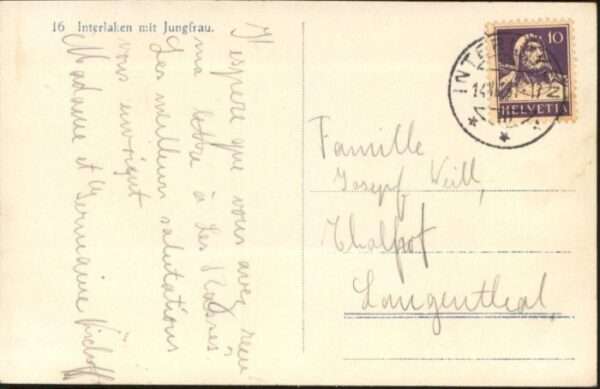 16 Interlaken mit Jungfrau.
J'espère que vous avez reçu
ma lettre à Les
Les meilleurs salutations
vous envoient
Madame et Germaine
INTER
10
HELVETIA
Famille
Josepf Weill,
Langenthal,